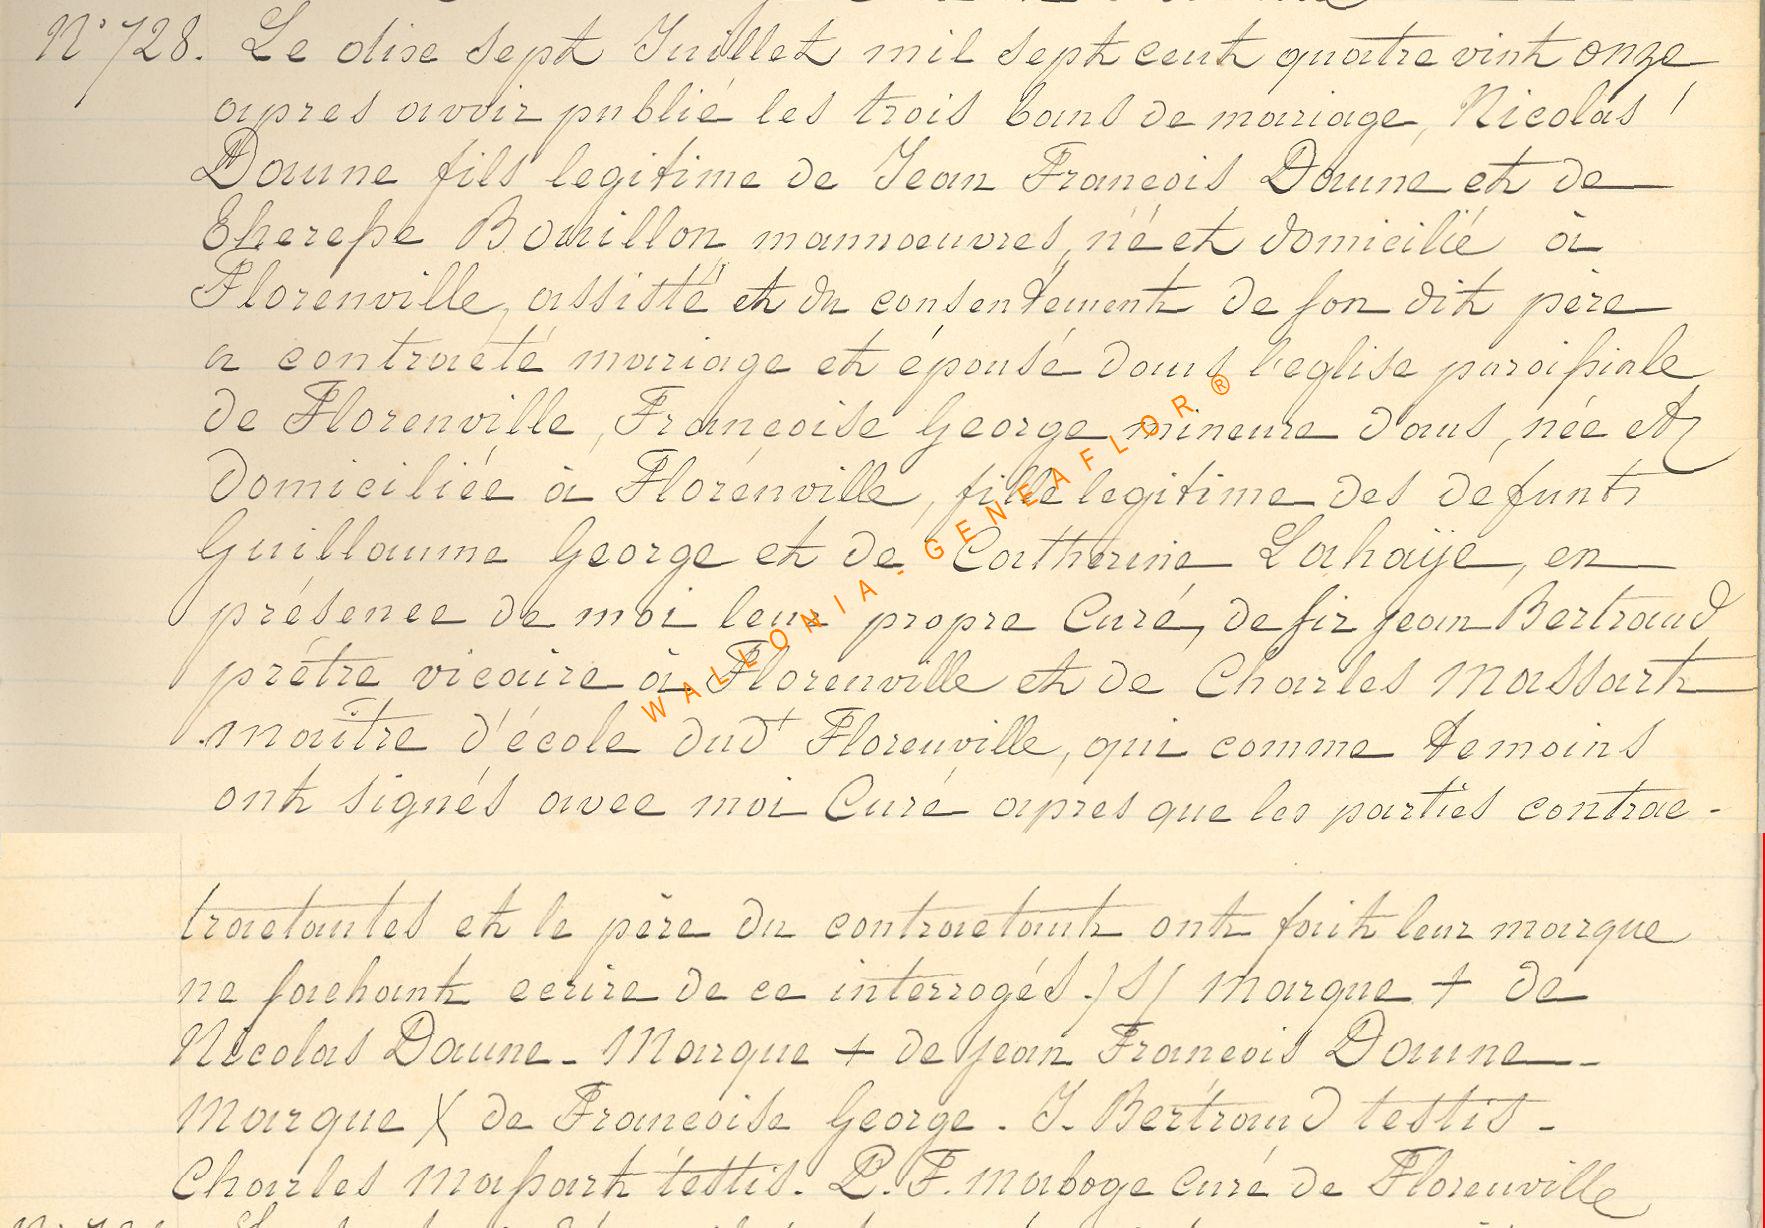 N° 728. Le dixe sept Juillet mil sept cent quatre vint onze
apres avoir publié les trois bans de mariage, Nicolas
Daune fils legitime de Jean François Daune et de
Theresse Bouillon mannoeuvres, né et domicilié à
Florenville, assisté et du consentement de son dit père
a contracté mariage et épousé dans l'eglise paroissiale
de Florenville, Françoise George mineure d'ans, née et
domiciliée à Florenville, fille legitime des defunts
Guillaume George et de Catherine Lahaÿe, en
présence de moi leur propre Curé, de sir Jean Bertrand
prétre vicaire à Florenville et de Charles Massart
maître d'école dud^t Florenville, qui comme temoins
ont signés avec moi Curé apres que les parties contrac-
tractantes et le père du contractant ont fait leur marque
ne sachant ecrire de ce interrogés. /S/ Marque + de
Nicolas Daune - Marque + de Jean François Daune -
Marque X de Francoise George. J. Bertrand testis -
Charles Massart testis. P. F. Maboge curé de Florenville
WALLONIA - GENEAFLOR ®